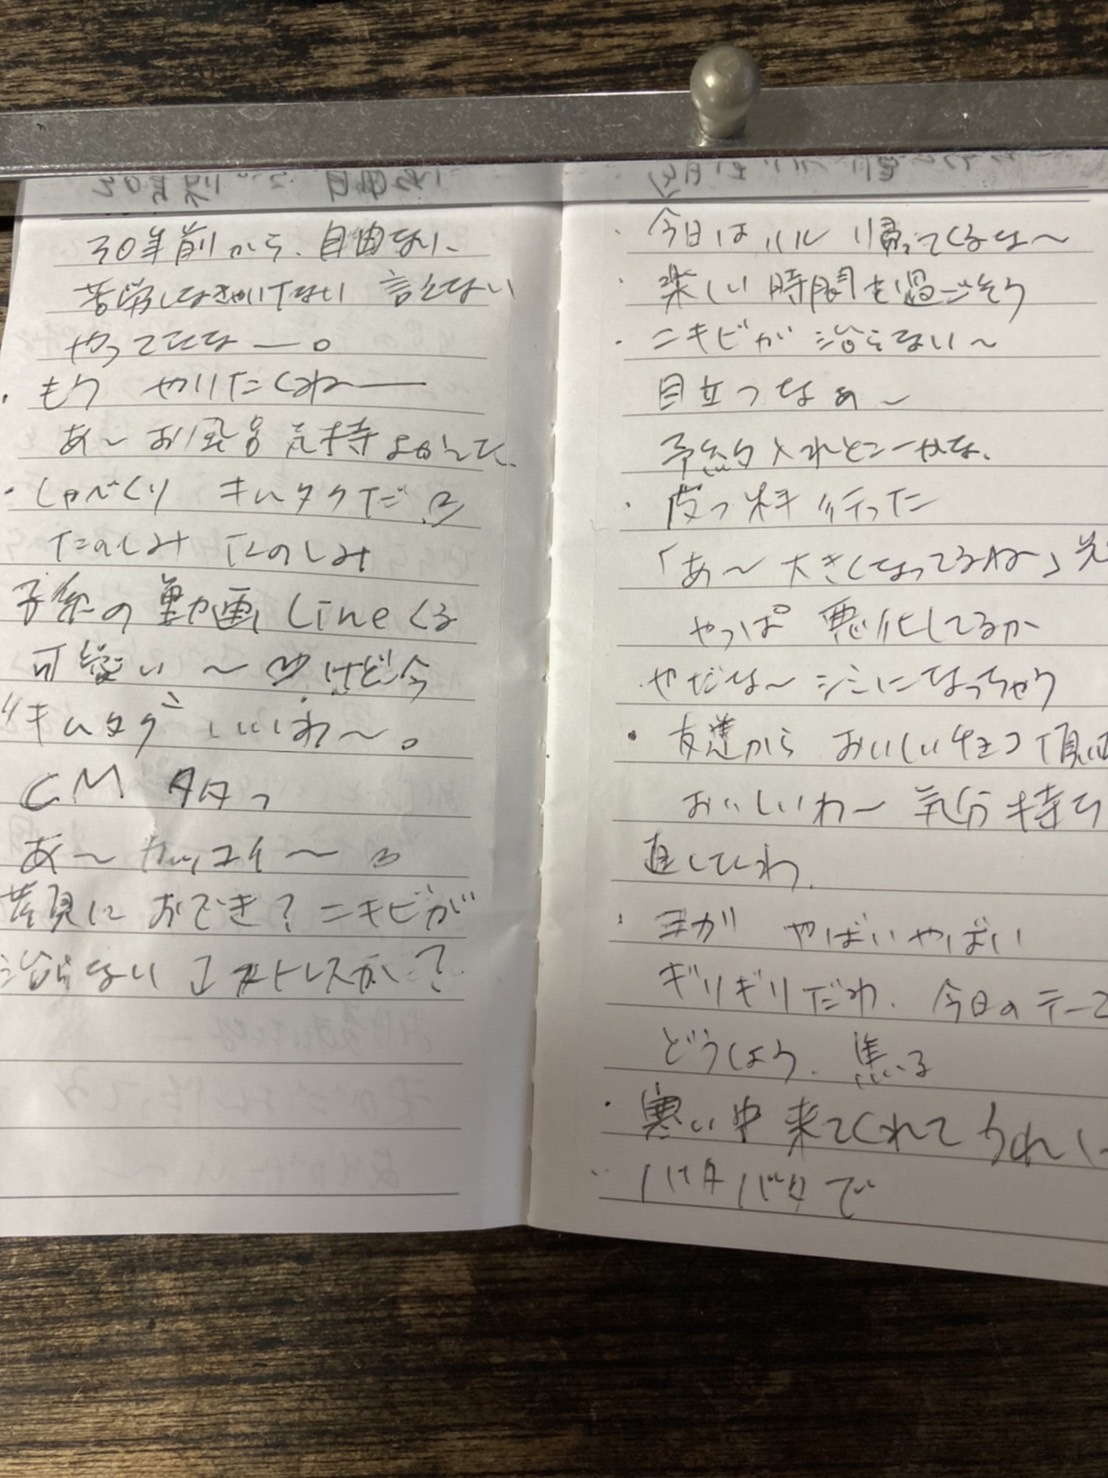 30年前から、自由ない、
苦労しなきゃいけない 言えない
やってたなー。
・もう やりたくねー
あ〜お風呂気持よかった、
・しゃべくり キムタクだ♡
たのしみ たのしみ
子条の動画Lineくる
可愛い〜♡けど今
"キムタク"いいわ〜。
CM タタっ
あ〜カッコイ〜♡
におでき?ニキビが
治らない ストレスか?
・今日はハル 帰ってくるな〜
・楽しい時間を過ごそう
・ニキビが治らない〜
目立つなぁ〜
予約入れとこーかな、
・皮フ科行った
「あ〜大きくなってるねー」先
やっぱ悪化してるか
やだな〜シミになっちゃう
・友達からおいしいチョコ頂い
おいしいわ〜気分持ち
直したわ、
・ヨガ やばいやばい
ギリギリだわ、今日のテーマ
どうしよう、焦る
・寒い中来てくれてうれし
・バタバタで